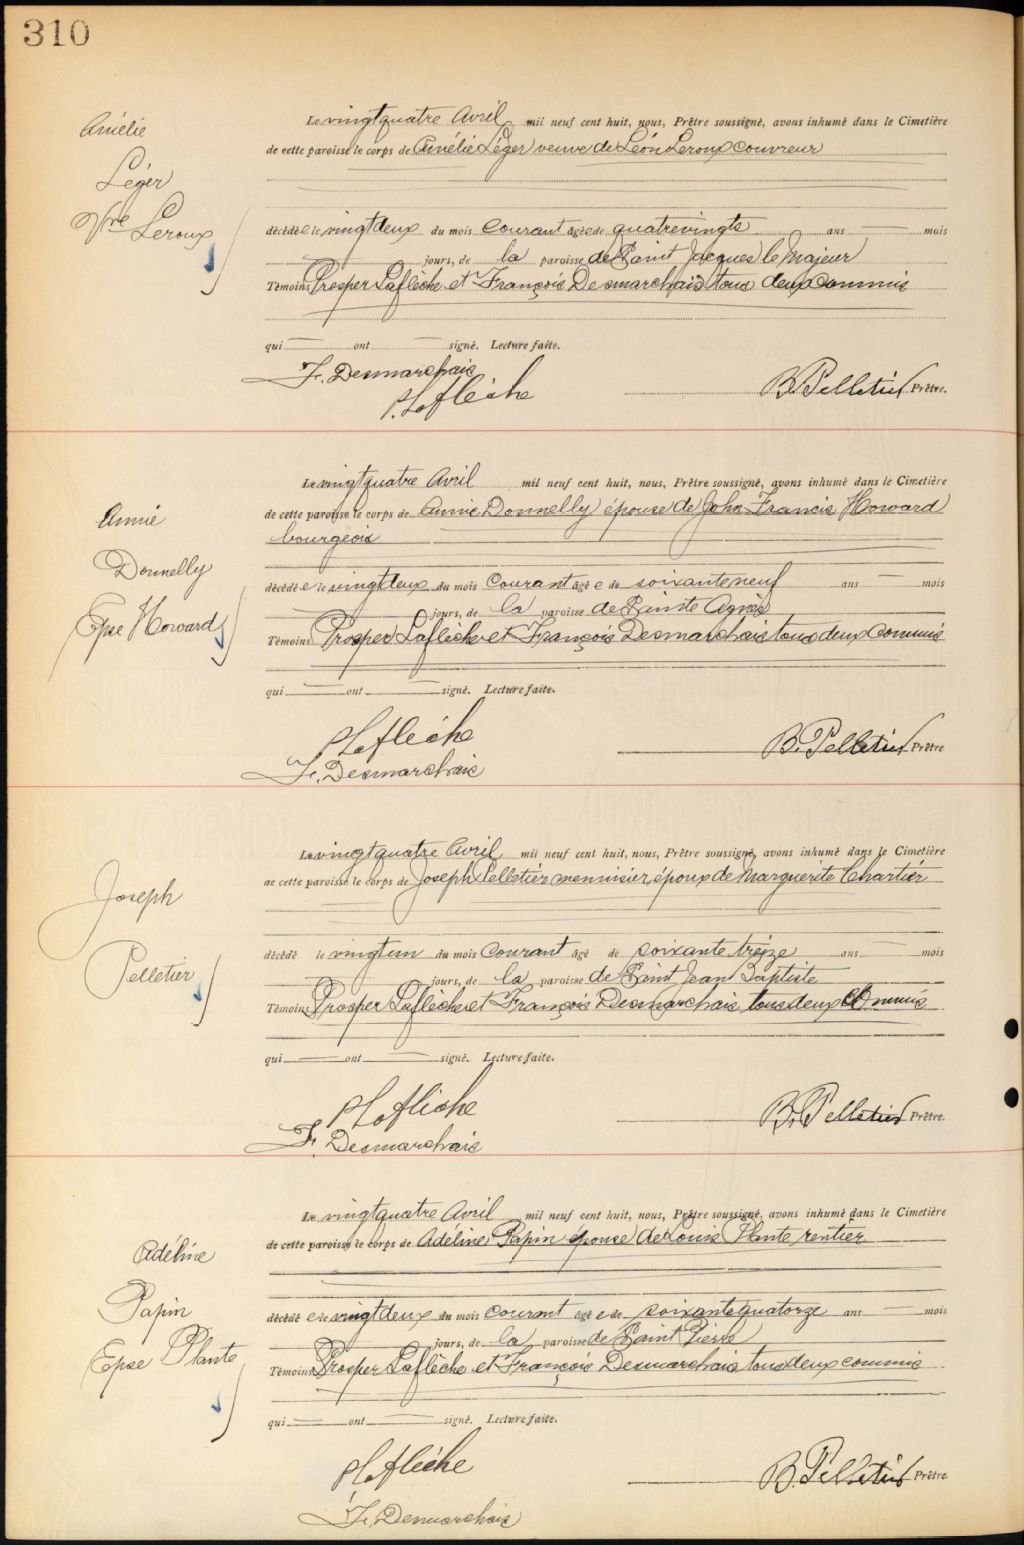 310
Amélie
Léger
Vve Leroux
Le vingtquatre Avril mil neuf cent huit, nous, Prêtre soussigné, avons inhumé dans le Cimetière
de cette paroisse le corps de Amélie Léger veuve de Léon Leroux couvreur
décédée le vingtdeux du mois courant âgée de quatrevingts ans — mois
jours, de la paroisse de Saint Jacques le Majeur
Témoins Prosper Laflèche et François Desmarchais tous deux commis
qui — ont — signé. Lecture faite.
F. Desmarchais
P. Laflèche
B. Pelletier Prêtre.
Annie
Donnelly
Epse Howard
Le vingtquatre Avril mil neuf cent huit, nous, Prêtre soussigné, avons inhumé dans le Cimetière
de cette paroisse le corps de Annie Donnelly épouse de John Francis Howard
bourgeois
décédée le vingtdeux du mois courant âgée de soixanteneuf ans — mois
jours, de la paroisse de Sainte Agnès
Témoins Prosper Laflèche et François Desmarchais tous deux commis
qui — ont — signé. Lecture faite.
P Laflèche
F. Desmarchais
B. Pelletier Prêtre
Joseph
Pelletier
Le vingtquatre Avril mil neuf cent huit, nous, Prêtre soussigné, avons inhumé dans le Cimetière
de cette paroisse le corps de Joseph Pelletier menuisier, époux de Marguerite Chartier
décédé le vingtun du mois courant âgé de soixante treize ans — mois
jours, de la paroisse de Saint Jean Baptiste
Témoins Prosper Laflèche et François Desmarchais tous deux commis
qui — ont — signé. Lecture faite.
P Laflèche
F. Desmarchais
B. Pelletier Prêtre.
Adéline
Papin
Epse Plante
Le vingtquatre Avril mil neuf cent huit, nous, Prêtre soussigné, avons inhumé dans le Cimetière
de cette paroisse le corps de Adéline Papin épouse de Louis Plante rentier
décédée le vingtdeux du mois courant âgée de soixantequatorze ans — mois
jours, de la paroisse de Saint Pierre
Témoins Prosper Laflèche et François Desmarchais tous deux commis
qui — ont — signé. Lecture faite.
P Laflèche
F. Desmarchais
B. Pelletier Prêtre.